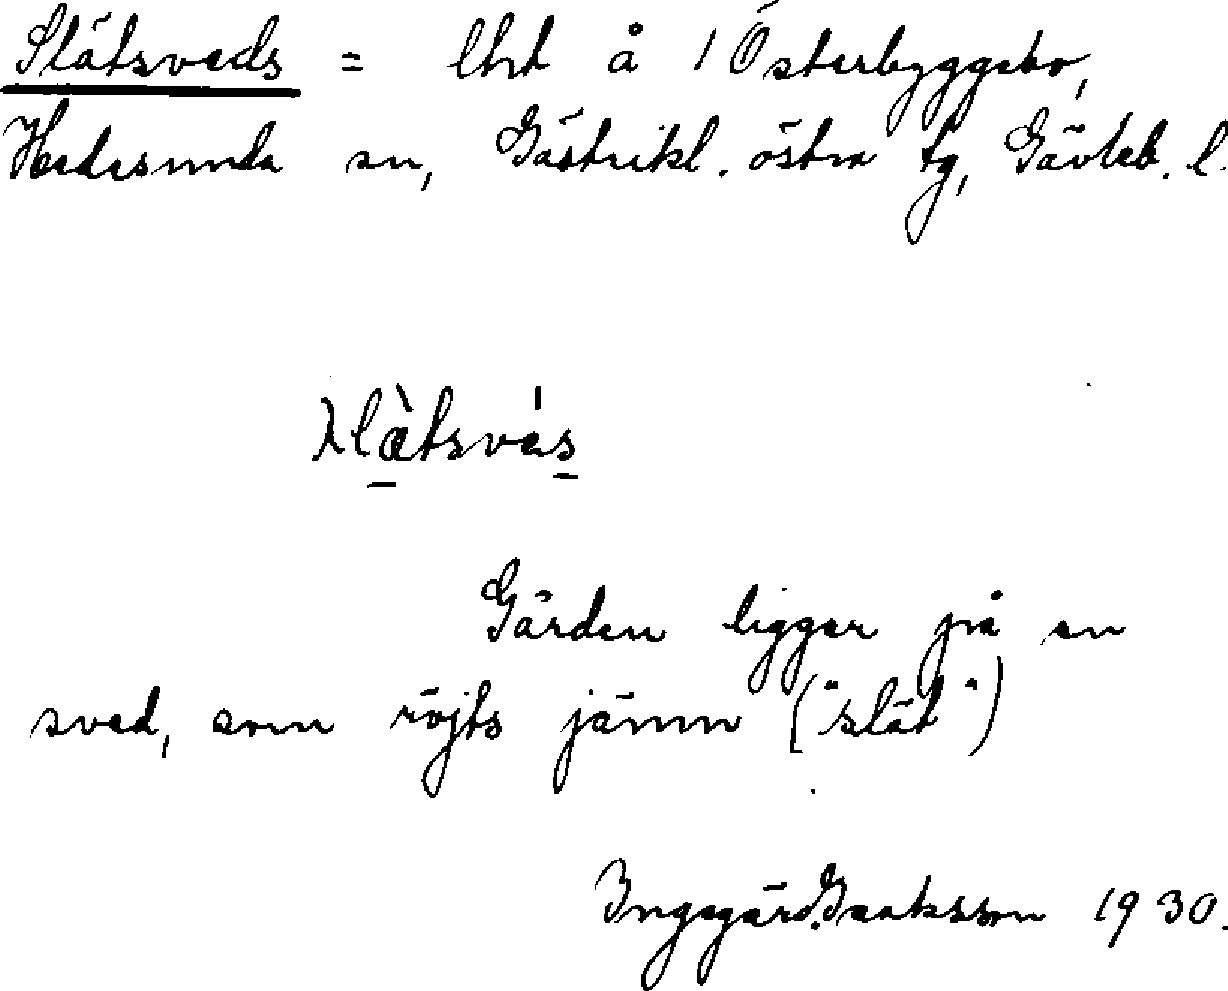 Slätsveds = lht å 1 Österbyggebo,
Hedesunda sn, Gästrikl. östra tg, Gävleb. l.
slätsves
Gården ligger på en
sved, som röjts jämn ("slät")
Ingegärd Isaksson 1930.